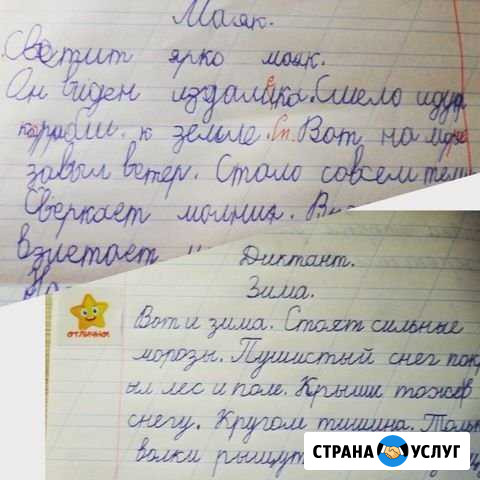 Маяк.
Светит ярко маяк.
Он виден издалека. Смело идут
корабли к земле. Сп. Вот на море
завыл ветер. Стало совсем
Сверкает молния.
взлетает
Диктант.
Зима.
ОТЛИЧНО!
Вот и зима. Стоят сильные
морозы. Пушистый снег пок
ыл лес и поле. Крыши тоже в
снегу. Кругом тишина. Толь
волки рыщут
СТРАНА УСЛУГ